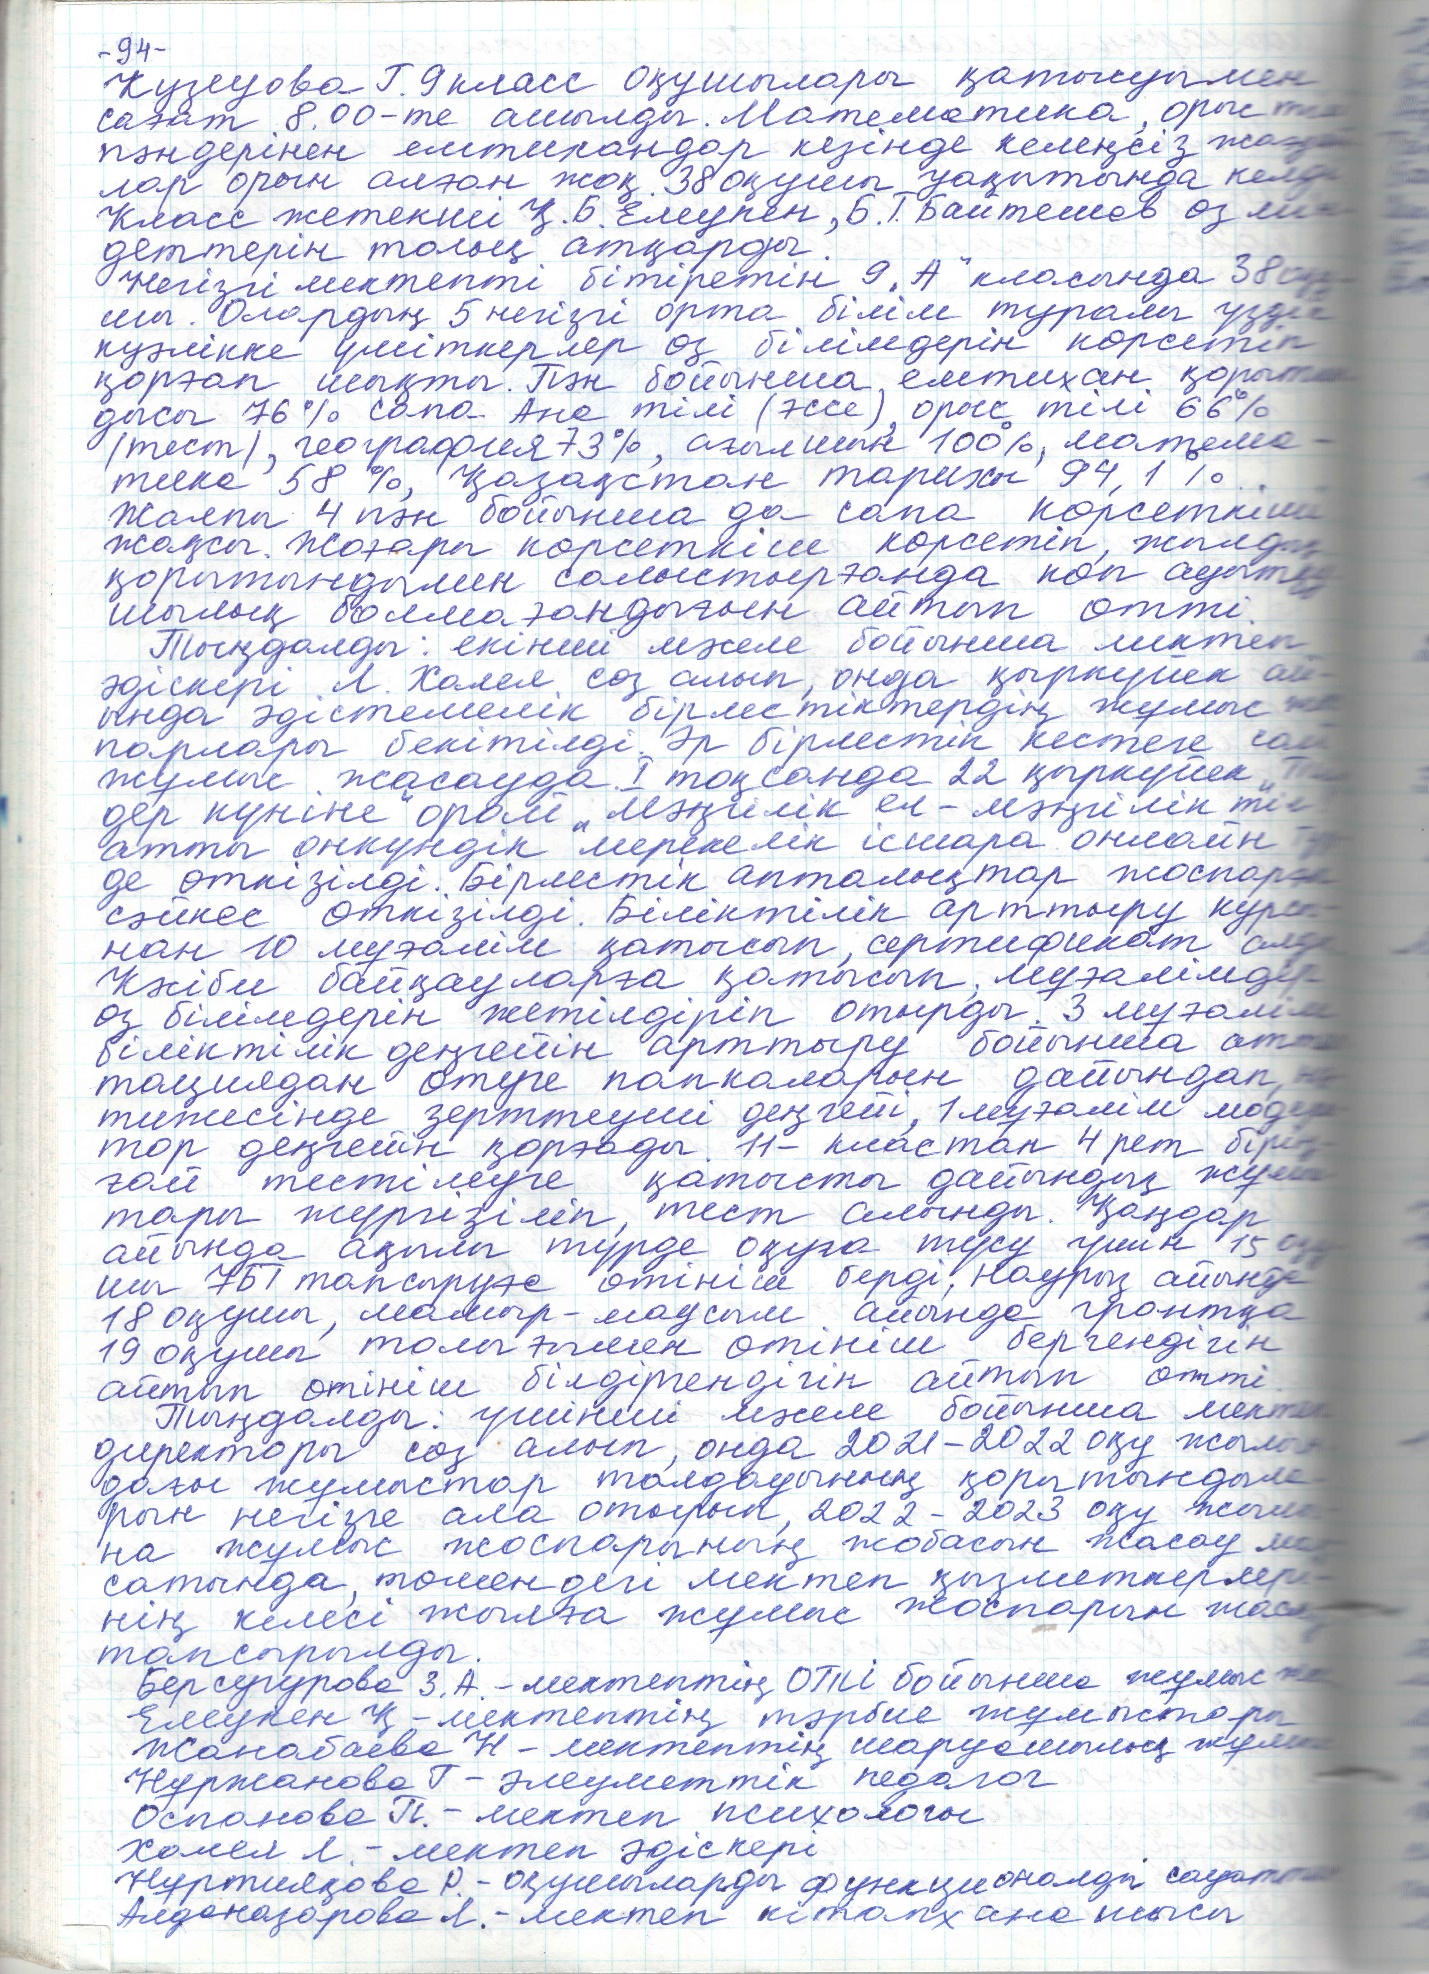 -94-
Кузеуова Г. 9 класс оқушылары қатысуымен
сағат 8.00-те ашылды. Математика, орыс
пәндерінен емтихандар кезінде келеңсіз
лар орын алған жоқ. 38 оқушы уақытында
Класс жетекші Қ.Б. Емукен, Б.Т. Байтешов өз
деттерін толық атқарды.
Негізгі мектепті бітіретін 9 „А" класында 38
шы. Олардың 5 негізгі орта білім туралы үздік
куәлікке үміткерлер өз білімдерін көрсетіп
қорғап шықты. Пән бойынша емтихан қорытын
дысы 76% сапа Ана тілі (эссе), орыс тілі 66%
(тест), география 73%, ағылшын 100%, матема-
тика 58%, Қазақстан тарихы 94,1%.
Жалпы 4 пән бойынша да сапа көрсеткіші
жақсы. Жоғары көрсеткіш көрсетіп, жылдық
қорытындымен салыстырғанда көп ауытқу
шылық болмағандығын айтып өтті.
Тыңдалды: екінші мәселе бойынша мектеп
әдіскері Л. Хамел сөз алып, онда қыркүйек ай-
ында әдістемелік бірлестіктердің жұмыс
парлары бекітілді. Әр бірлестік кестеге сай
жұмыс жасауда. I тоқсанда 22 қыркүйек
дер күніне" орай „Мәңгілік ел - мәңгілік тіл
атты онкүндік мерекелік ісшара онлайн
де өткізілді. Бірлестік апталықтар жоспарға
сәйкес өткізілді. Біліктілік арттыру курсы-
нан 10 мұғалім қатысып, сертификат алды
Кәсіби байқауларға қатысып, мұғалімдер
өз білімдерін жетілдіріп отырды. 3 мұғалім
біліктілік деңгейін арттыру бойынша
тациядан өтуге папкаларын дайындап,
тижесінде зерттеуші деңгейі, 1 мұғалім модера
тор деңгейін қорғады. 11-кластан 4 рет бірың-
ғай тестілеуге қатысты дайындық
тары жүргізіліп, тест алынды. Қаңтар
айында ақылы түрде оқуға түсу үшін 15
шы ҰБТ тапсыруға өтініш берді, наурыз айында
18 оқушы, мамыр-маусым айында грантқа
19 оқушы толығымен өтініш бергендігін
айтып өтініш білдіргендігін айтып өтті.
Тыңдалды: үшінші мәселе бойынша мектеп
директоры сөз алып, онда 2021-2022 оқу жылын
дағы жұмыстар талдауының қорытындыла-
рын негізге ала отырып, 2022-2023 оқу жылы-
на жұмыс жоспарының жобасын жасау
сатында, төмендегі мектеп қызметкерлері-
нің келесі жылға жұмыс жоспарын жасау
тапсырылды.
Берсугурова З.А. - мектептің ОТІ бойынша жұмыс
Емукен Қ - мектептің тәрбие жұмыстары
Жанабаева Н - мектептің шаруашылық
Нуржанова Г - әлеуметтік педагог
Оспанова П. - мектеп психологы
Хамел Л. - мектеп әдіскері
Нуртияқова Р. - оқушыларды функционалды
Алданазарова Л. - мектеп кітапханашысы